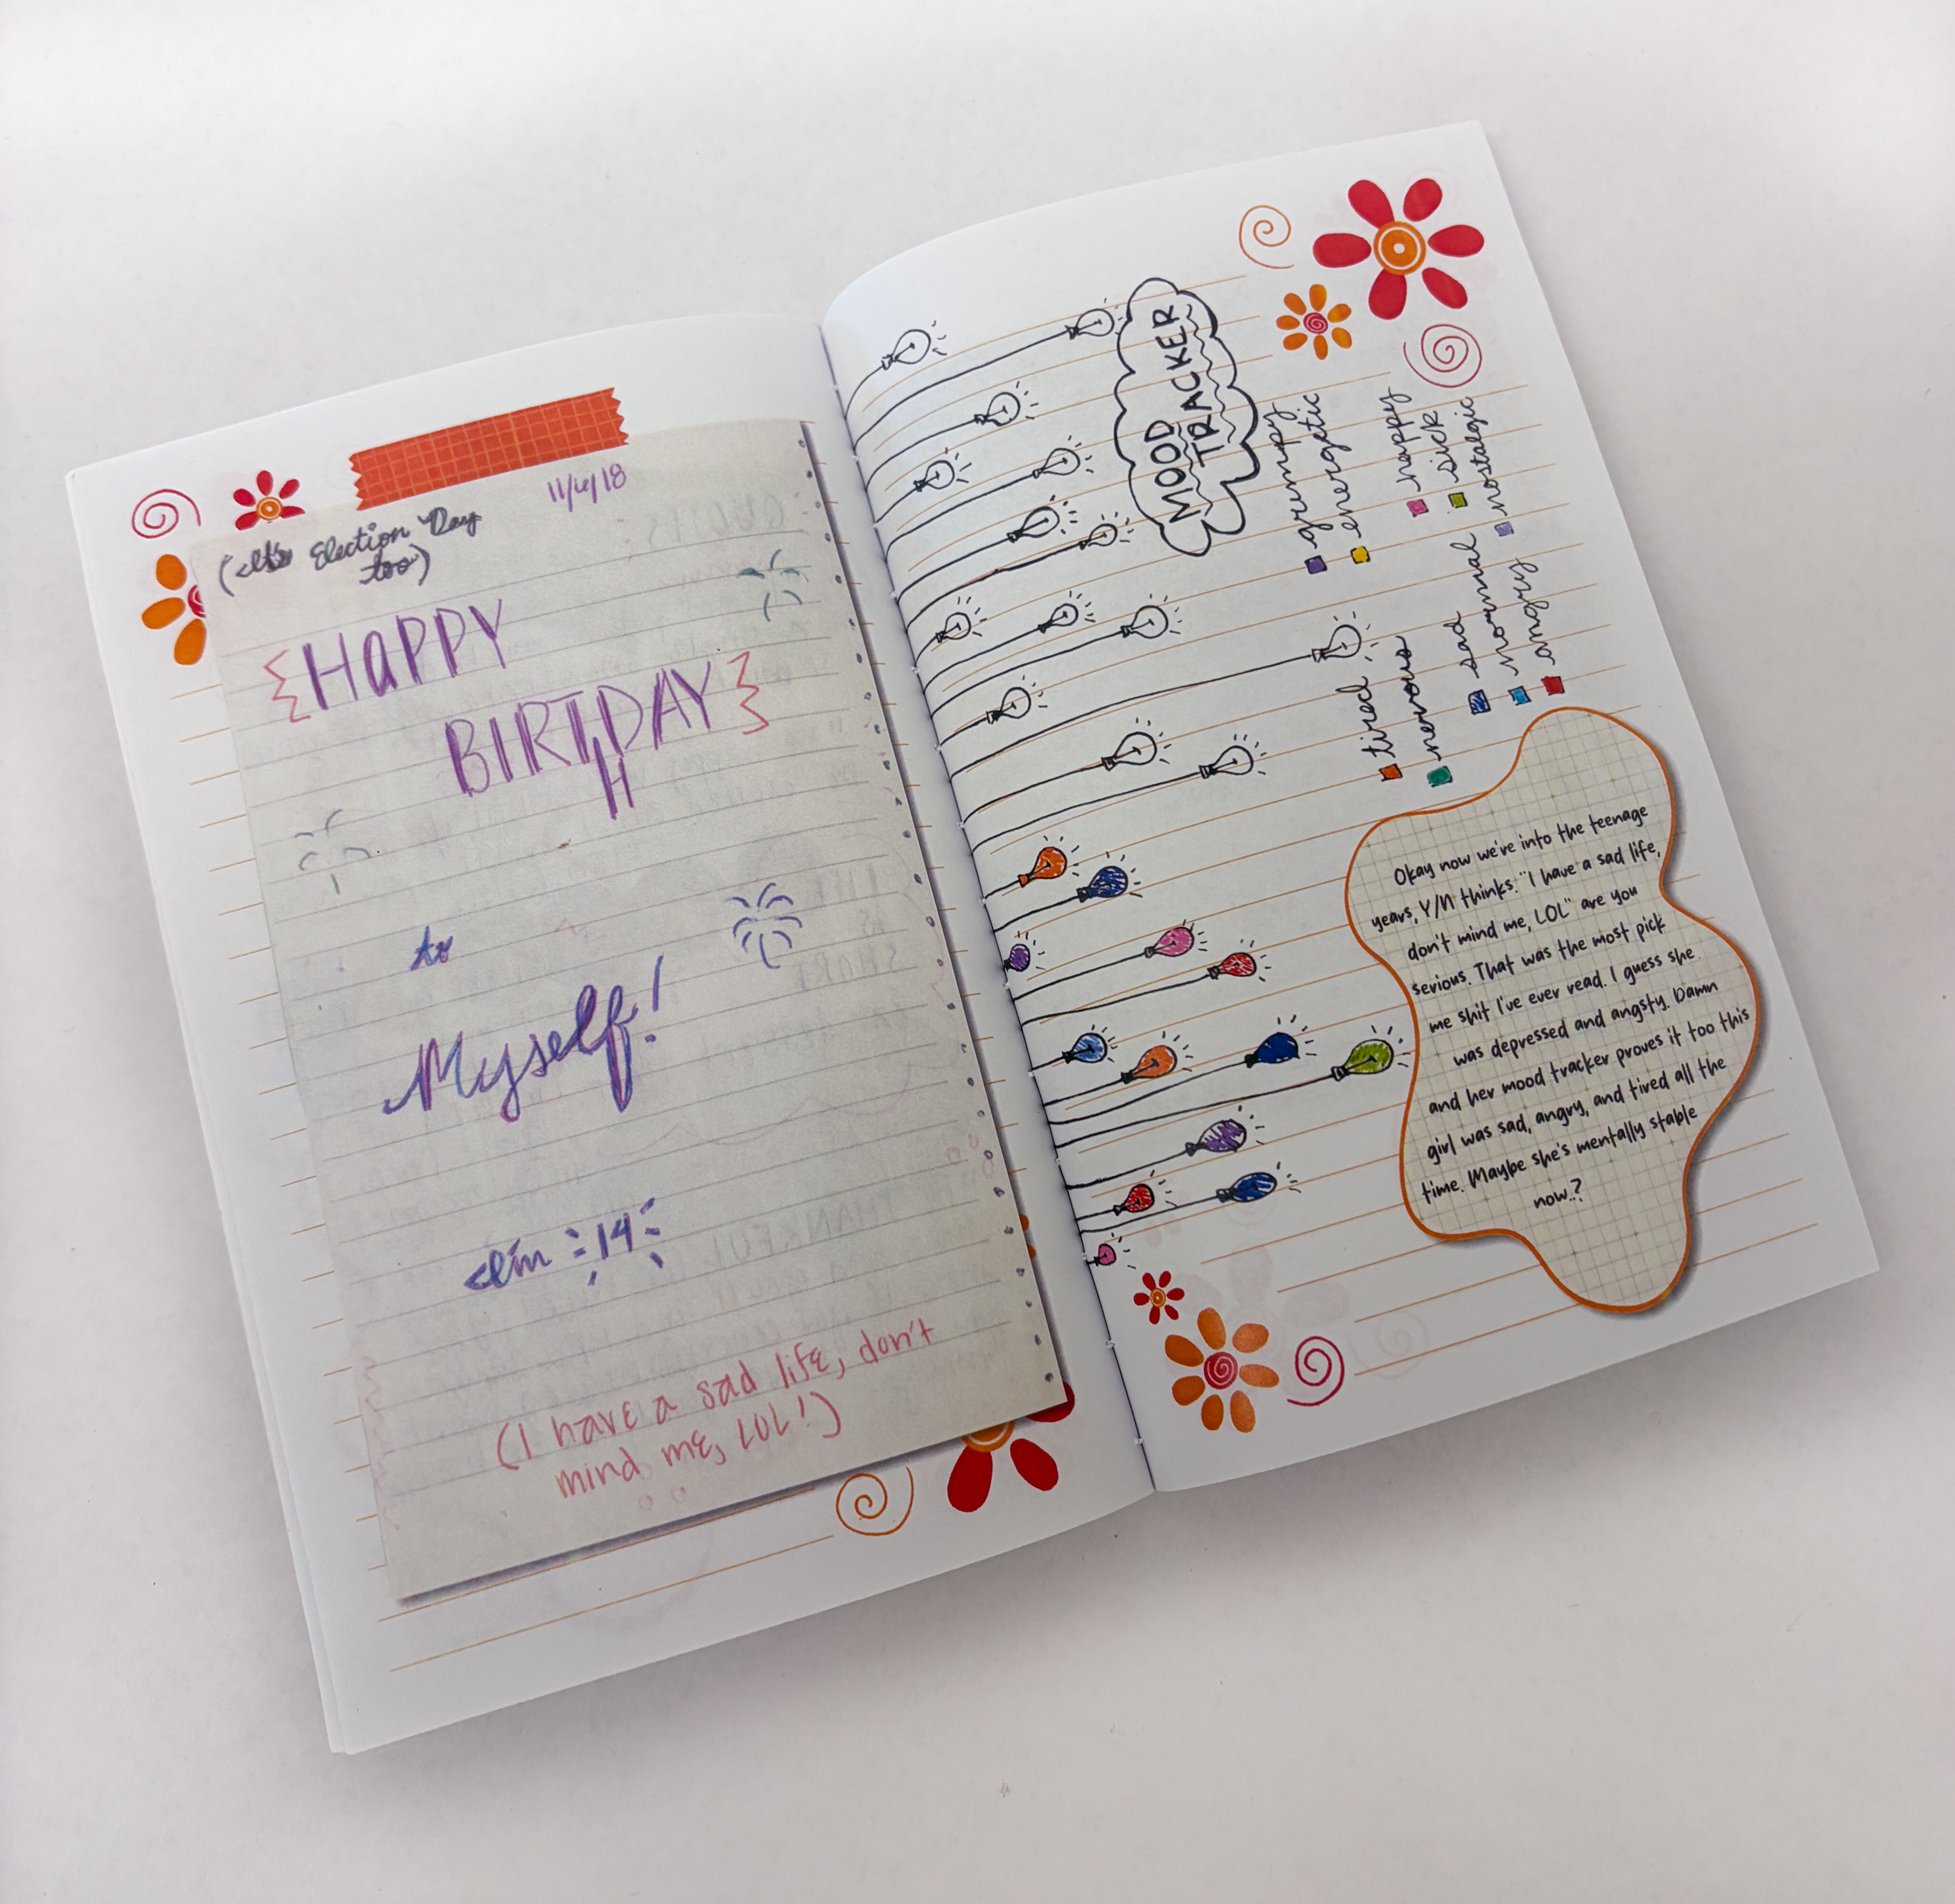 11/6/18
(It's Election Day
too)
{HAPPY
BIRTDAY}
H
to
Myself!
I'm 14
(I have a sad life, don't
mind me, LOL!)
MOOD
TRACKER
grumpy
energetic
happy
sick
nostalgic
tired
nervous
sad
normal
angry
Okay now we're into the teenage
years, Y/N thinks. "I have a sad life,
don't mind me, LOL" are you
serious. That was the most pick
me shit I've ever read. I guess she
was depressed and angsty. Damn
and her mood tracker proves it too this
girl was sad, angry, and tired all the
time. Maybe she's mentally stable
now..?